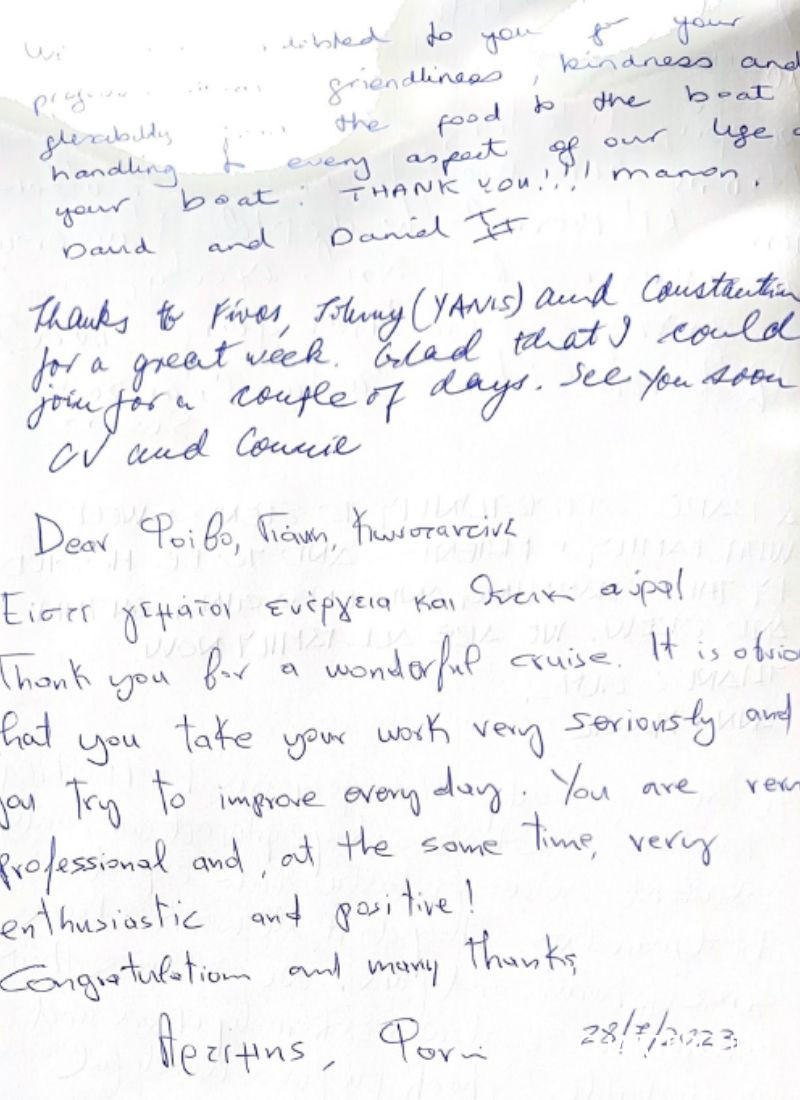 to you for your
friendliness, kindness and
the food to the boat
handling & every aspect of our
your boat. THANK YOU!!! manon.
David and Daniel
Thanks to Fivos, Johnny (YANIS) and Constantin
for a great week. Glad that I could
join for a couple of days. See you soon
CV and Connie
Dear Φοίβο, Γιάννη, Κωνσταντίνε
Είστε γεμάτοι ενέργεια και θετική αύρα!
Thank you for a wonderful cruise. It is obvio
hat you take your work very seriously and
you try to improve every day. You are very
professional and, at the same time, very
enthusiastic and positive!
Congratulation and many thanks,
28/7/2023